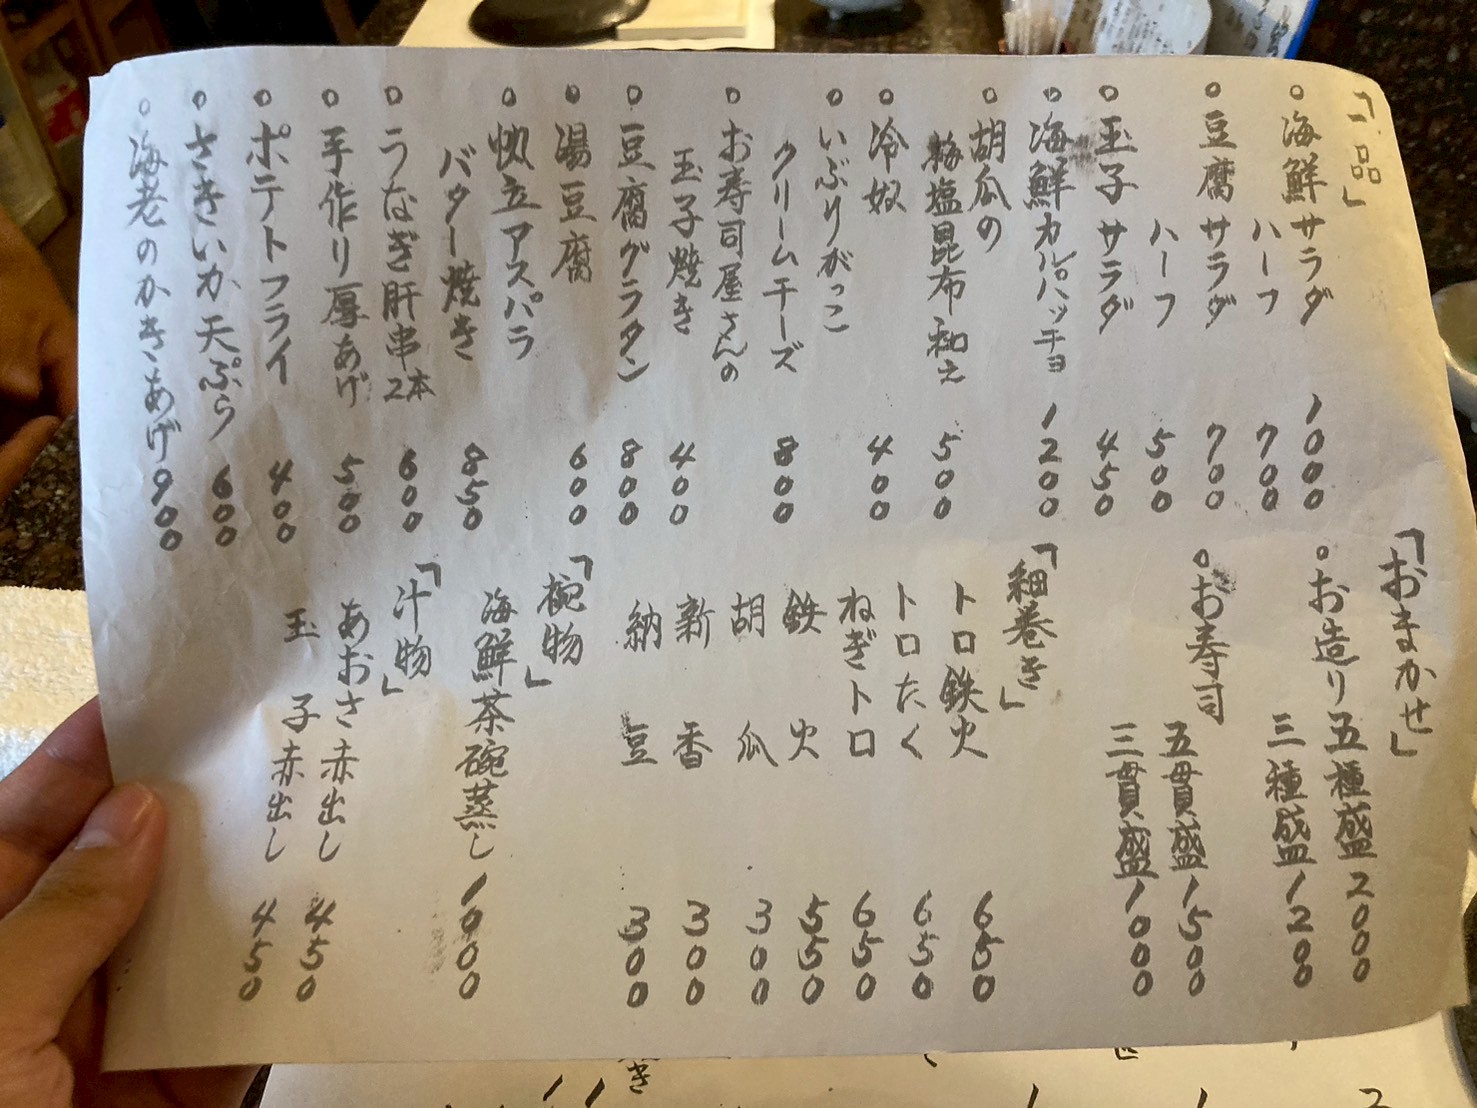 「一品」
○海鮮サラダ 1000
ハーフ 700
○豆腐サラダ 700
ハーフ 500
○玉子サラダ 450
○海鮮カルパッチョ 1200
○胡瓜の
梅塩昆布和え 500
○冷奴 400
○いぶりがっこ
クリームチーズ 800
○お寿司屋さんの
玉子焼き 400
○豆腐グラタン 800
○湯豆腐 600
○帆立アスパラ
バター焼き 850
○うなぎ肝串2本 600
○手作り厚あげ 500
○ポテトフライ 400
○さきいか天ぷら 600
○海老のかきあげ 900
「おまかせ」
○お造り五種盛 2000
三種盛 1200
○お寿司
五貫盛 1500
三貫盛 1000
「細巻き」
トロ鉄火 650
トロたく 650
ねぎトロ 650
鉄火 550
胡瓜 300
新香 300
納豆 300
「椀物」
海鮮茶碗蒸し 1000
「汁物」
あおさ赤出し 450
玉子赤出し 450